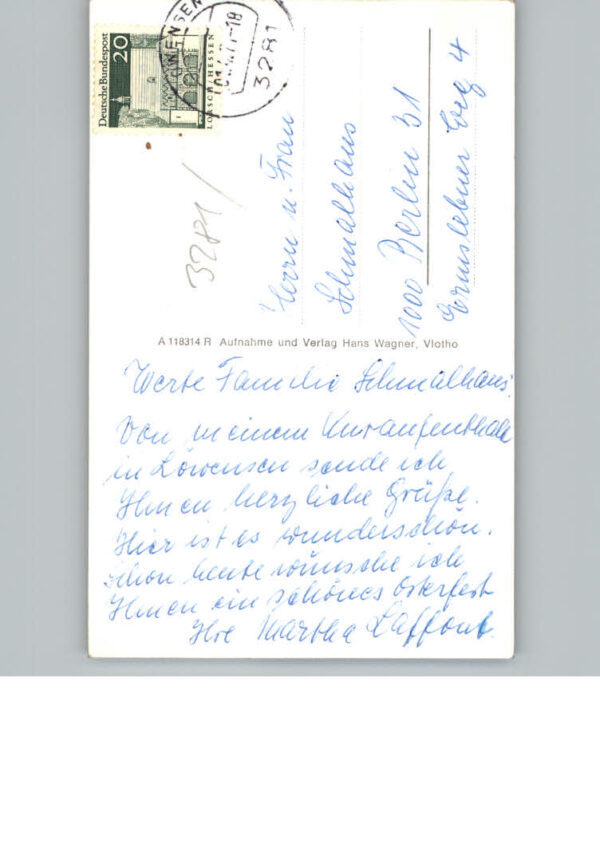 Deutsche Bundespost
20
LORSCH/HESSEN
-18
3281
3281/
Herrn u. Frau
Schmalhaus
1000 Berlin 31
Ermslebner Weg 4
A 118314 R Aufnahme und Verlag Hans Wagner, Vlotho
Werte Familie Schmalhaus!
Von meinem Kuraufenthalt
in Löwensen sende ich
Ihnen herzliche Grüße.
Hier ist es wunderschön.
Schon heute wünsche ich
Ihnen ein schönes Osterfest
Ihre Martha